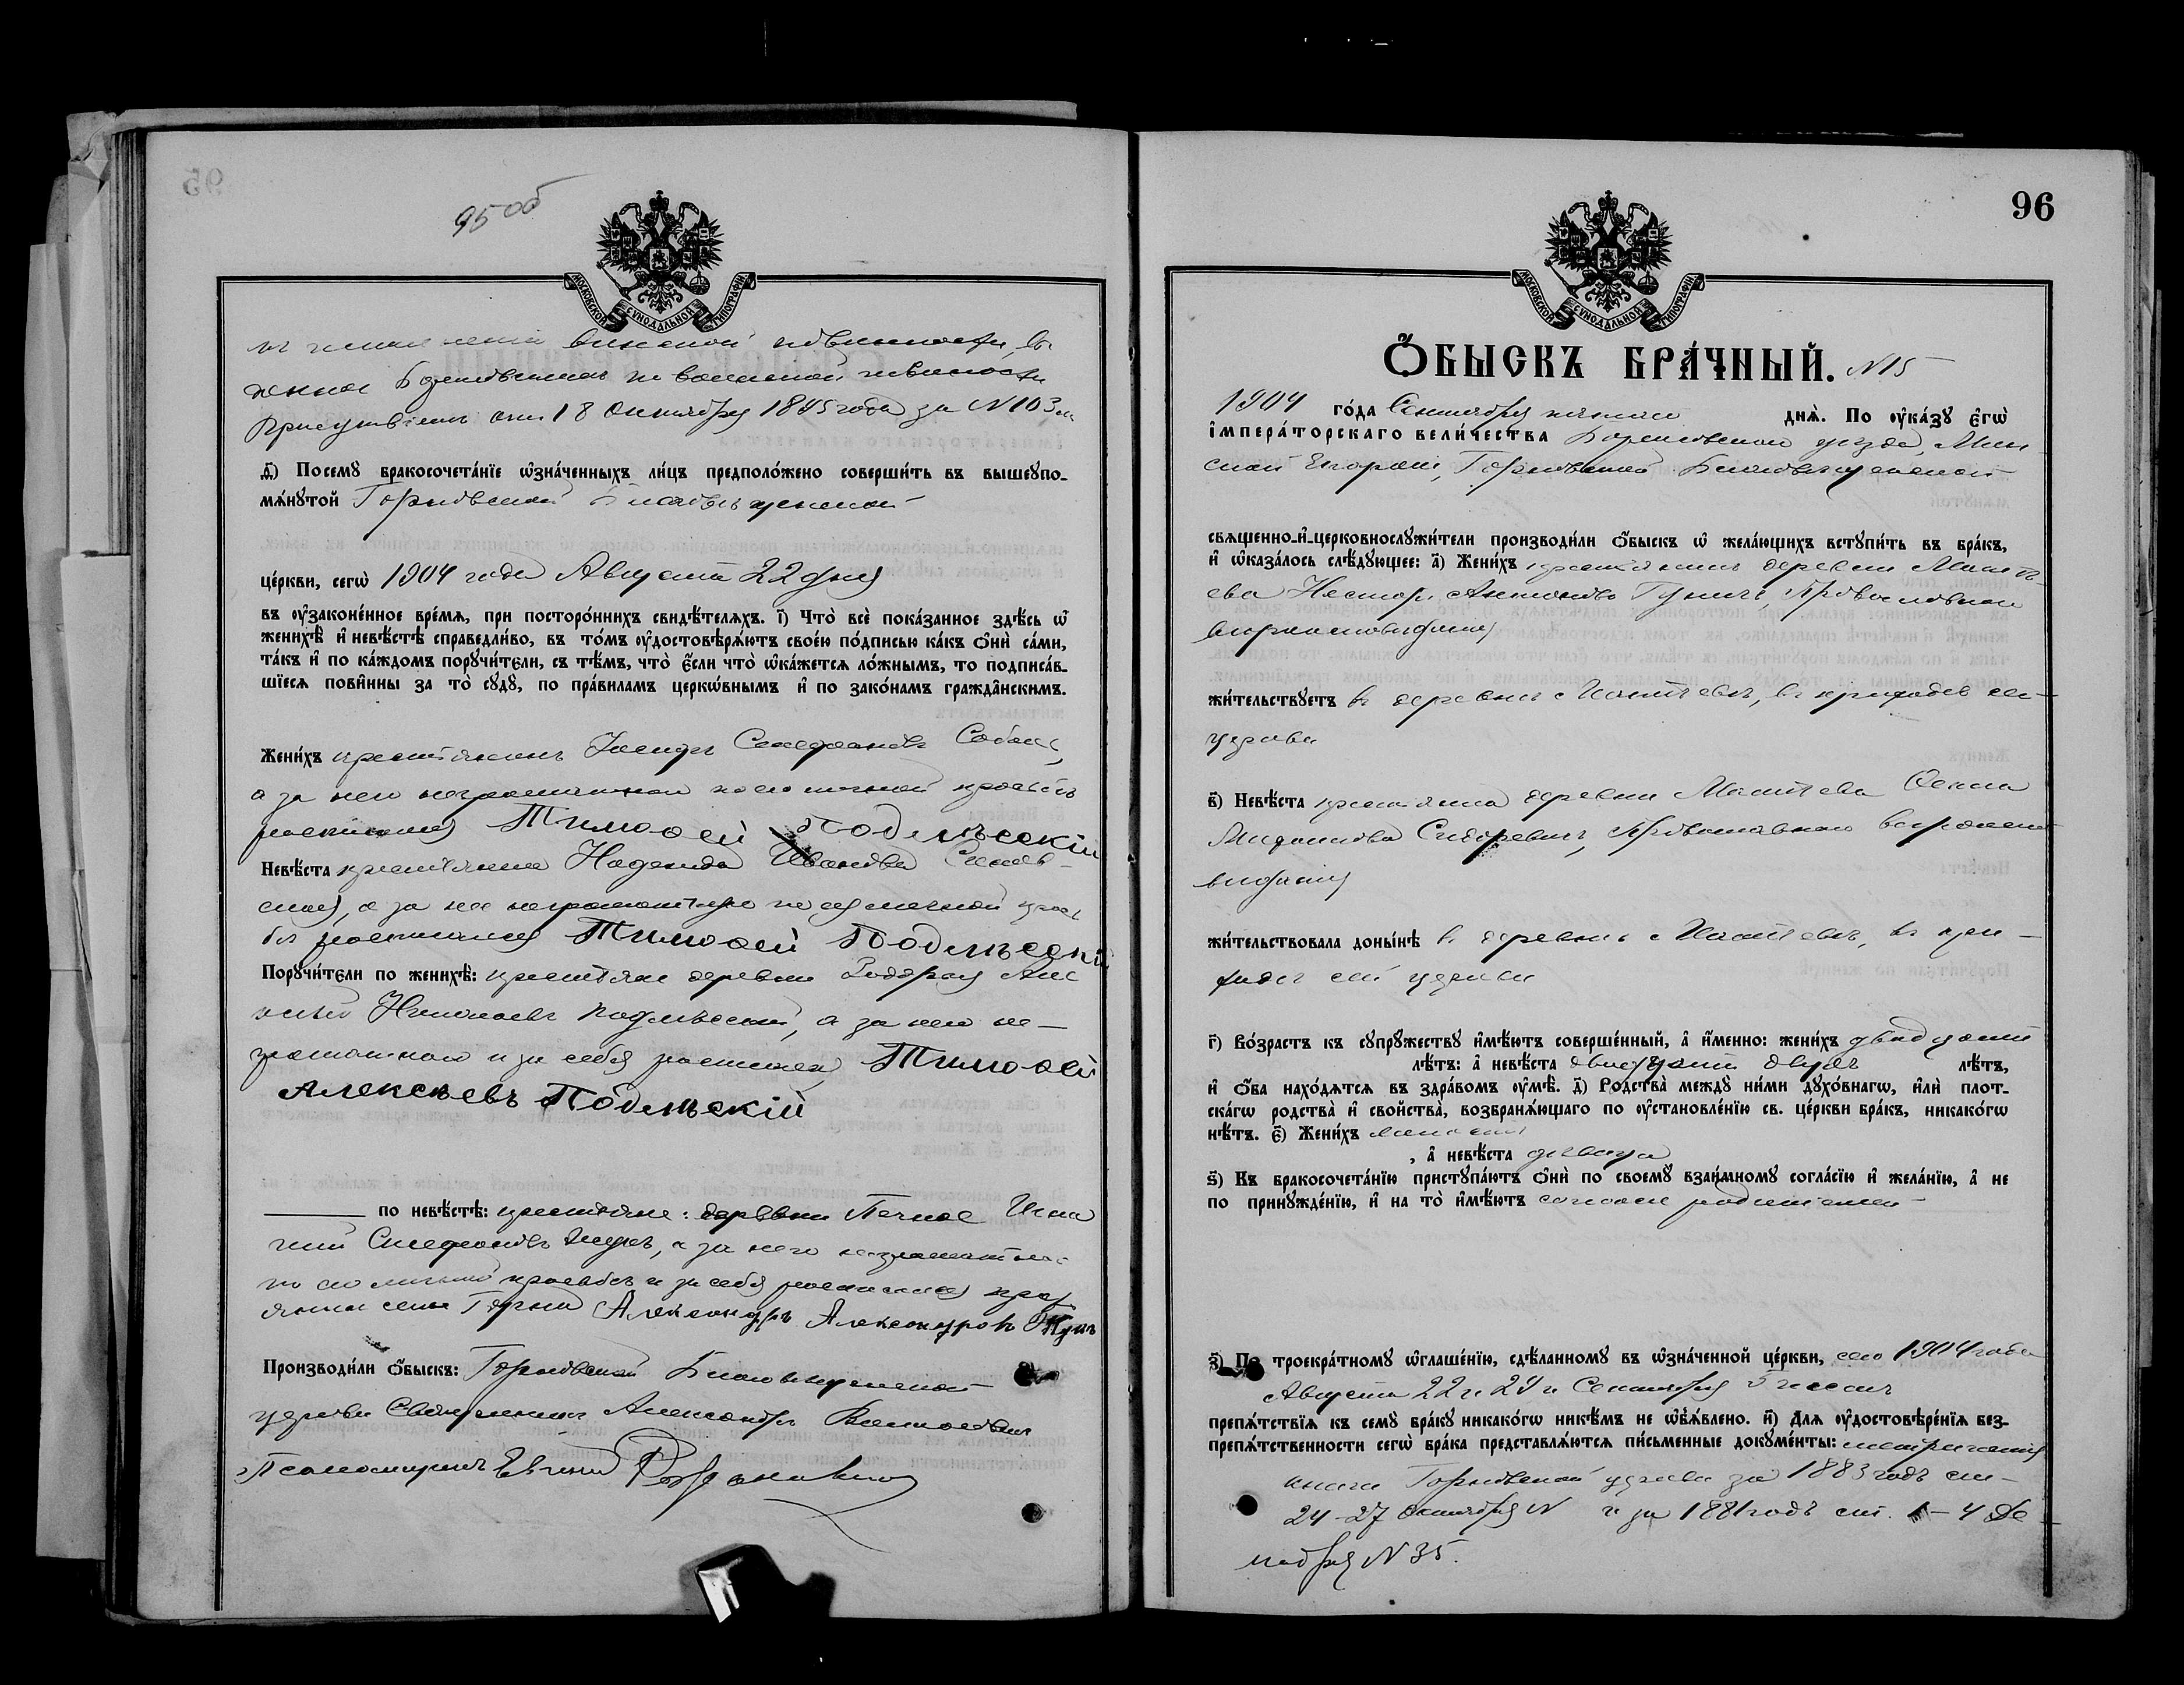 95 об
МОСКОВСКОЙ СУНОДАЛЬНОЙ ТИПОГРАФІИ
воинской повинности, вы
Борисовскимъ по воинской повинности
Присутствіемъ отъ 18 Октября года за N 103
д҃) Посемꙋ бракосочета́нїе ѡ҆зна́ченныхъ ли́цъ предполо́жено соверши́ть въ вышеꙋпо-
мѧ́нꙋтой Горновской Благовѣщенской
це́ркви, сегѡ̀ 1904 года Августа 22 дня
въ ᲂу҆законе́нное вре́мѧ, при посторо́ннихъ свидѣ́телѧхъ. і҃) Что̀ всѐ пока́занное здѣ́сь ѡ҆
женихѣ̀ и҆ невѣ́стѣ справедли́во, въ то́мъ ᲂу҆достовѣрѧ́ютъ свое́ю по́дписью ка́къ ѻ҆нѝ са́ми,
та́къ и҆ по ка́ждомъ порꙋчи́тели, съ тѣ́мъ, что̀ є҆́сли что̀ ѡ҆ка́жетсѧ ло́жнымъ, то подписа́в-
шїесѧ пови́нны за то̀ сꙋдꙋ̀, по пра́виламъ церкѡ́внымъ и҆ по зако́намъ гражда́нскимъ.
Жени́хъ крестьянинъ Іосифъ Стефановъ
а за него неграмотнаго по его личной просьбѣ
росписался Тимоѳей Подлѣсскій
Невѣ́ста крестьянка Надежда Иванова
а за нее неграмотную по ея личной прось
бѣ росписался Тимоѳей Подлѣсскі
Порꙋчи́тели по женихѣ̀: крестьяне деревни Алек
сѣй Николаевъ Подлѣсскій, а за него не-
грамотнаго и за себя росписался Тимоѳей
Алексѣевъ Подлѣскій
по невѣ́стѣ: крестьяне: деревни Игна
тій Стефановъ а за него неграмотнаго
по его личной просьбѣ и за себя росписался крест
янинъ села Александръ Александровъ
Производи́ли ѻ҆́быскъ: Горновской Благовѣщенской
церкви Священникъ Александръ
Псаломщикъ Евгеній
96
МОСКОВСКОЙ СУНОДАЛЬНОЙ ТИПОГРАФІИ
Ѻ҆́БЫСКЪ БРА́ЧНЫЙ. N15
1904 го́да Сентября пятаго днѧ̀. По ᲂу҆ка́зꙋ є҆гѡ̀
і҆мпера́торскаго вели́чества Борисовскаго уѣзда, Мин
ской Епархіи, Горновской Благовѣщенской
свѧщенно-и҆-церковнослꙋжи́тели производи́ли ѻ҆́быскъ ѡ҆ жела́ющихъ встꙋпи́ть въ бра́къ,
и҆ ѡ҆каза́лось слѣ́дꙋющее: а҃) Жени́хъ крестьянинъ деревни
Несторъ Антоновъ Гуничъ, Православнаго
вѣроисповѣданія
жи́тельствꙋетъ въ деревнѣ въ приходѣ сей
церкви
в҃) Невѣ́ста крестьянка деревни
Сидоревичъ, Православнаго вѣроиспо
вѣданія
жи́тельствовала доны́нѣ въ деревнѣ въ при-
ходѣ сей церкви
г҃) Во́зрастъ къ сꙋпрꙋ́жествꙋ и҆мѣ́ютъ соверше́нный, а҆ и҆́менно: жени́хъ двадцати
лѣ́тъ: а҆ невѣ́ста двадцати двухъ лѣ́тъ,
и҆ ѻ҆́ба нахо́дѧтсѧ въ здра́вомъ ᲂу҆мѣ̀. д҃) Родства̀ междꙋ ни́ми дꙋхо́внагѡ, и҆лѝ плот-
ска́гѡ родства̀ и҆ свойства̀, возбранѧ́ющаго по ᲂу҆становле́нїю св. це́ркви бра́къ, никако́гѡ
нѣ́тъ. є҃) Жени́хъ холостъ
, а҆ невѣ́ста дѣвица
ѕ҃) Къ бракосочета́нїю пристꙋпа́ютъ ѻ҆нѝ по своемꙋ̀ взаи́мномꙋ согла́сїю и҆ жела́нїю, а҆ не
по принꙋжде́нїю, и҆ на то̀ и҆мѣ́ютъ согласіе родителей
з҃) По троекра́тномꙋ ѡ҆глаше́нїю, сдѣ́ланномꙋ въ ѡ҆зна́ченной це́ркви, сего 1904 года
Августа 22 и 29 и Сентября 5 чиселъ
препѧ́тствїѧ къ семꙋ̀ бра́кꙋ никако́гѡ никѣ́мъ не ѡ҆б̾ѧ́влено. и҃) Длѧ ᲂу҆достовѣре́нїѧ без-
препѧ́тственности сегѡ̀ бра́ка представлѧ́ютсѧ пи́сьменные докꙋме́нты: метрическія
книги Горновской церкви за 1883 годъ ст-
24-27 Октября N и за 1881 годъ ст. 1-4 Де
кабря N 35.